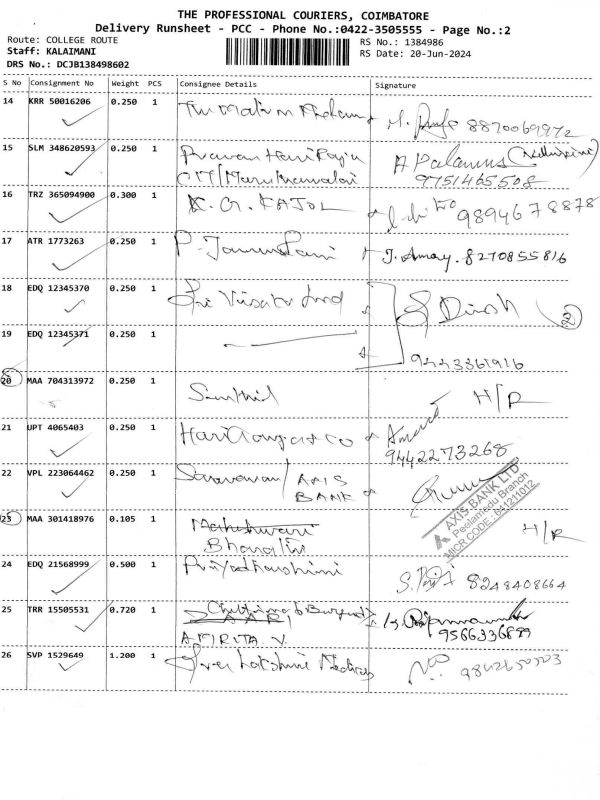 THE PROFESSIONAL COURIERS, COIMBATORE
Delivery Runsheet - PCC - Phone No.:0422-3505555 - Page No.:2
Route: COLLEGE ROUTE
Staff: KALAIMANI
DRS No.: DCJB138498602
RS No.: 1384986
RS Date: 20-Jun-2024
S No Consignment No Weight PCS Consignee Details Signature
14 KRR 50016206 0.250 1 8870069972
15 SLM 348620593 0.250 1
9751465508
16 TRZ 365094900 0.300 1 K. G. KAJOL 9894678878
17 ATR 1773263 0.250 1 8270855816
18 EDQ 12345370 0.250 1 Sri
19 EDQ 12345371 0.250 1
9443361916
20 MAA 704313972 0.250 1 Senthil H/R
21 UPT 4065403 0.250 1
9442273268
22 VPL 223064462 0.250 1 Saravanan / AXIS
BANK
AXIS BANK LTD
Peelamedu Branch
MICR CODE : 641211012
23 MAA 301418976 0.105 1 Maheshwari H/R
Bharathi
24 EDQ 21568999 0.500 1 Priyadharshini 8248408664
25 TRR 15505531 0.720 1
AMRITA V. 9566336899
26 SVP 1529649 1.200 1 Sree Lakshmi Medicals 9842650503